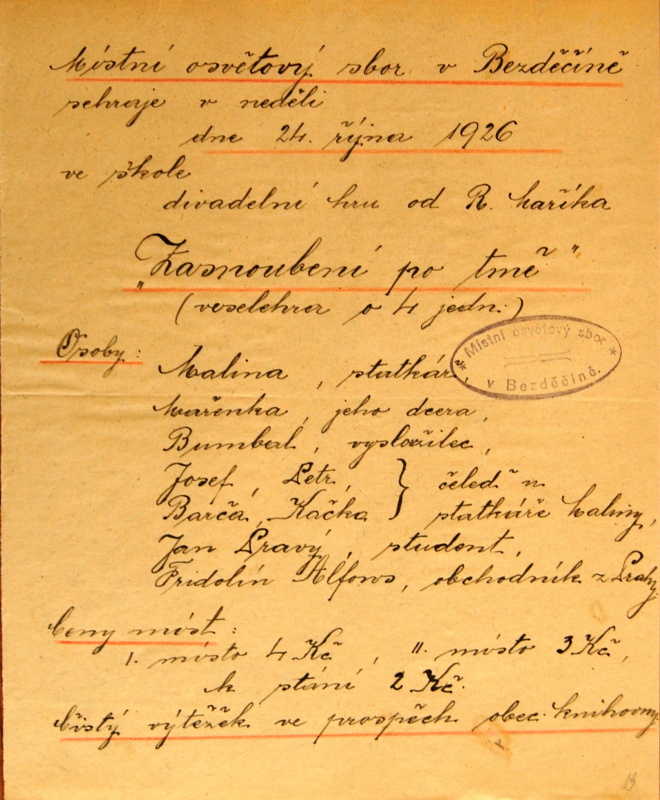 Místní osvětový sbor v Bezděčíně
sehraje v neděli
dne 24. října 1926
ve škole
divadelní hru od R. Maříka
"Zasnoubení po tmě"
(veselohra o 4 jedn.)
Osoby:
Malina, statkář,
Místní osvětový sbor
v Bezděčíně.
Mařenka, jeho dcera,
Bumbal, vysloužilec,
Josef, Petr, } čeleď u
Barča, Kačka } statkáře Maliny,
Jan Pravý, student,
Fridolín Alfons, obchodník z Prahy
Ceny míst:
I. místo 4 Kč, II. místo 3 Kč,
k stání 2 Kč.
Čistý výtěžek ve prospěch obec. knihovny